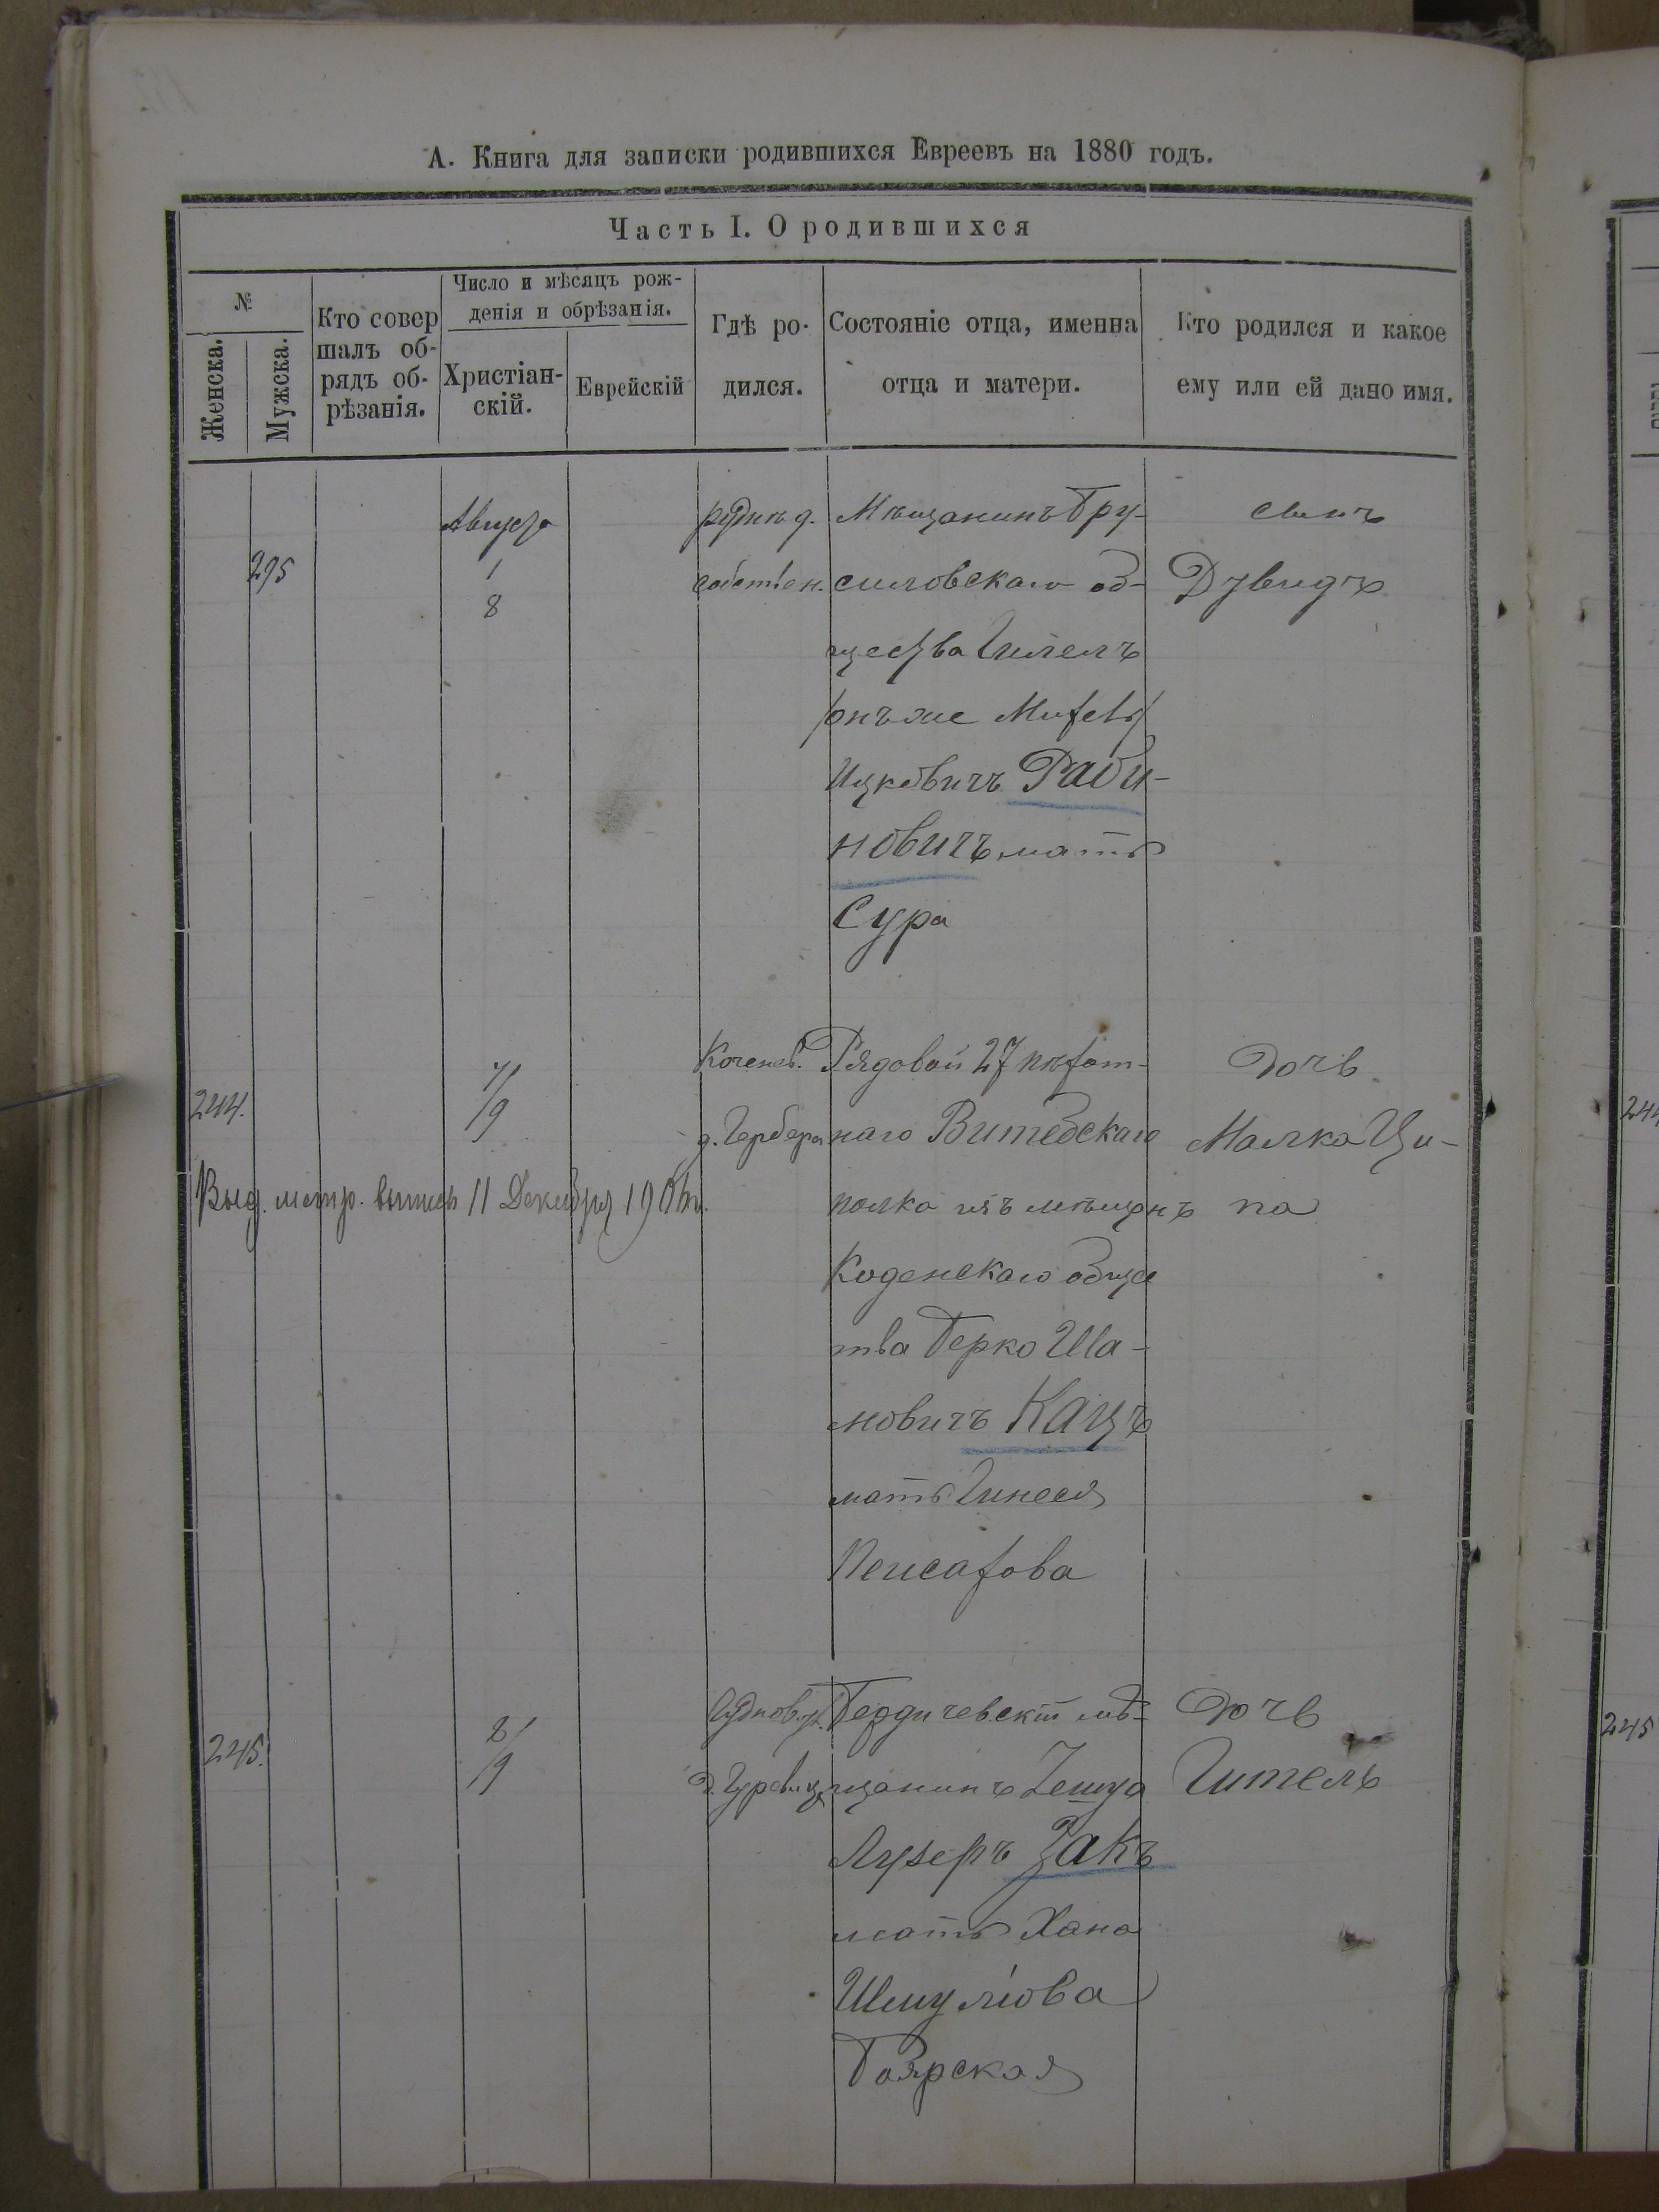 А. Книга для записки родившихся Евреевъ на 1880 годъ.
Часть I. О родившихся
№
Женска.
Мужска.
Кто совер
шалъ об-
рядъ об-
рѣзанія.
Число и мѣсяцъ рож-
денія и обрѣзанія.
Христіан-
скій.
Еврейскій
Гдѣ ро-
дился.
Состояніе отца, именна
отца и матери.
Кто родился и какое
ему или ей дано имя.
295
Августа
1
8
д.
собствен.
Мѣщанинъ Тру-
силовскаго об-
щества Гилелъ
/онъ же
Ицковичъ Раби-
новичъ мать
Сура
сынъ
Дувидъ
244.
7/
/9
Коченев.
д. Гербера
Рядовой 27 пѣхот-
наго Витебскаго
полка изъ мѣщанъ
Коденскаго общес
тва Берко Ша-
мовичъ Кацъ
мать Гинеся
Пейсахова
Дочь
Малка Ци-
па
Выд. метр. выпись 11 Декабря
245.
8/
/9
Чуднов. ул.
д. Гуревица
Бердичевскій мѣ-
щанинъ Зейлда
Лузеръ Закъ
мать Хана
Шмулiова
Боярская
Дочь
Гителъ
244
245